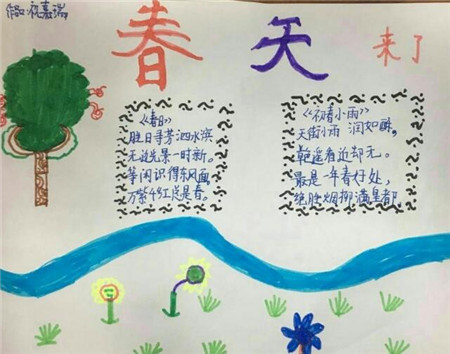 春天来了
《春日》
胜日寻芳泗水滨
无边光景一时新。
等闲识得东风面
万紫千红总是春。
《初春小雨》
天街小雨 润如酥,
草色遥看近却无。
最是一年春好处,
绝胜烟柳满皇都